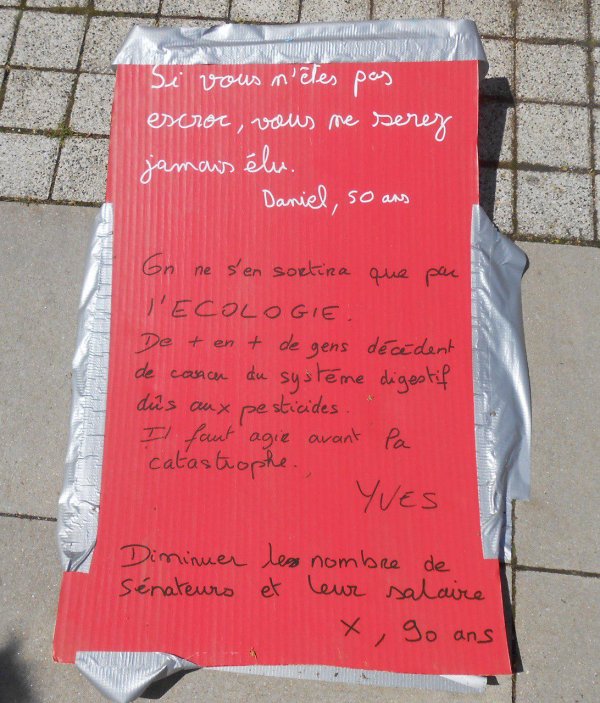 Si vous n'êtes pas
escroc, vous ne serez
jamais élu.
Daniel, 50 ans
On ne s'en sortira que par
l'ECOLOGIE.
De + en + de gens décèdent
de cancer du système digestif
dûs aux pesticides.
Il faut agir avant la
catastrophe.
YVES
Diminuer le nombre de
Sénateurs et leur salaire
X, 90 ans